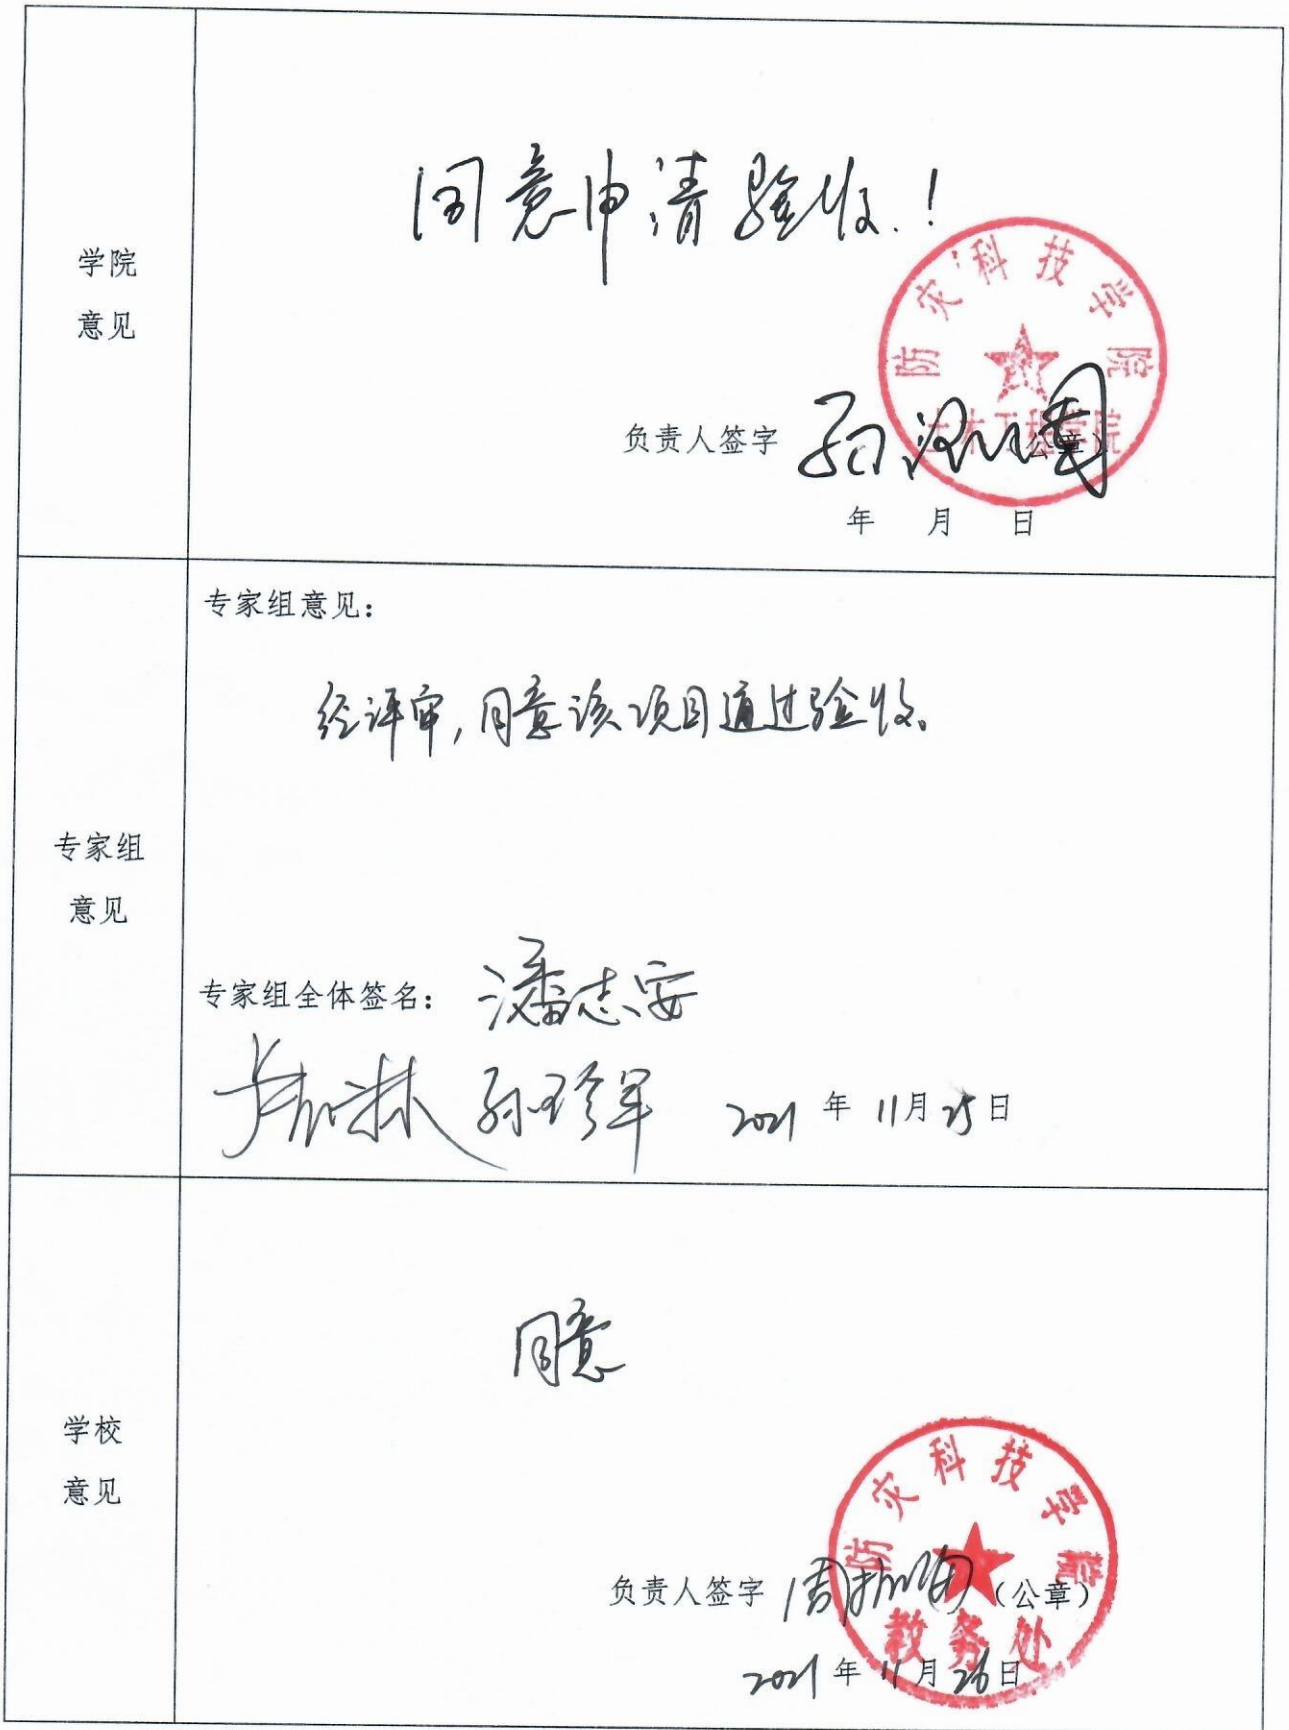 学院
意见
同意申请验收!
防灾科技学院
土木工程学院
负责人签字
(公章)
年 月 日
专家组
意见
专家组意见:
经评审,同意该项目通过验收。
专家组全体签名: 潘志安
孙珍军 2021 年 11月 25日
学校
意见
同意
防灾科技学院
教务处
负责人签字 (公章)
2021 年 11 月 26日